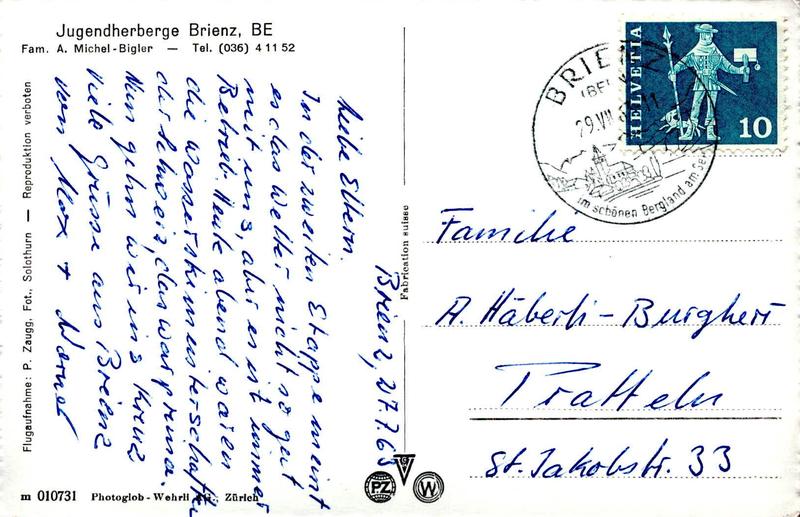 Jugendherberge Brienz, BE
Fam. A. Michel-Bigler — Tel. (036) 4 11 52
Brienz, 27.7.63
Liebe Eltern.
In der zweiten Etappe meint
es das Wetter nicht so gut
mit uns, aber es ist immer
Betrieb. Heute abend waren
die Wasserskimeisterschaften
der Schweiz, das war prima.
Nun gehn wir ins Kreuz
Viele Grüsse aus Brienz
von Max + Werner
Flugaufnahme: P. Zaugg, Fot., Solothurn — Reproduktion verboten
m 010731 Photoglob-Wehrli AG., Zürich
Fabrication suisse
PZ
W
BRIENZ
(BE)
29.VII.63
im schönen Bergland am See
HELVETIA
10
Familie
A. Häberli-Burgherr
Pratteln
St. Jakobstr. 33